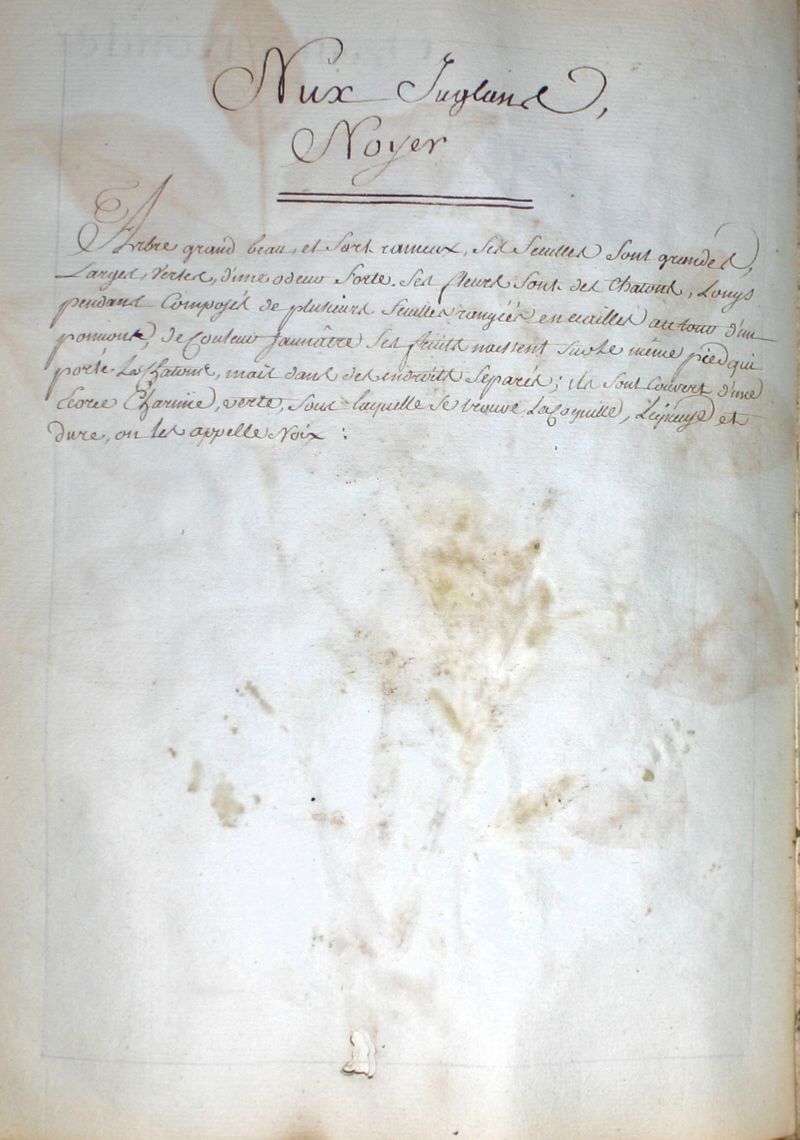 Nux Juglans,
Noyer
Arbre grand beau, et fort rameux, ses feuilles sont grandes,
Larges, vertes, d'une odeur forte. Ses fleurs sont des Chatons, Longs
pendans Composés de plusieurs feuilles rangées en écailles autour d'un
de Couleur Jaunâtre Ses fruits naissent sur le même pied qui
porte Les Chatons, mais dans des endroits Separés; ils sont Couvert d'une
Ecorce Charnue, verte, sous laquelle se trouve La Coquille, Ligneuse et
Dure, on les appelle Noix :